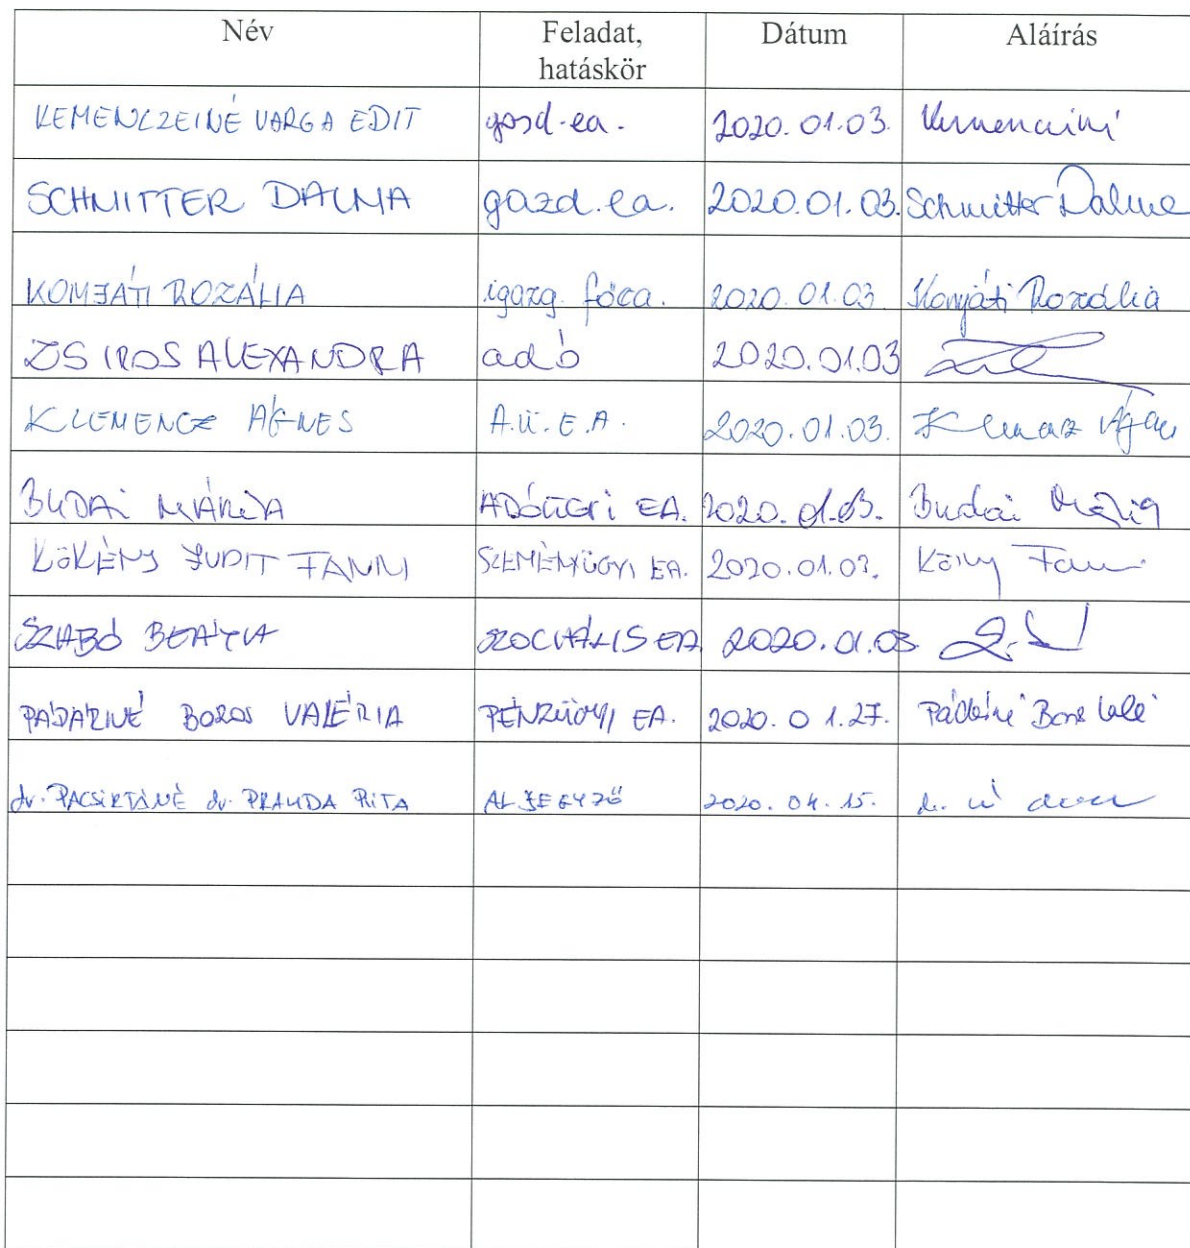 Név Feladat, hatáskör Dátum Aláírás
KEMENCZEINÉ VARGA EDIT gazd. ea. 2020.01.03. Kemencziné
SCHMITTER DALMA gazd. ea. 2020.01.03. Schmitter Dalma
KOMJÁTI ROZÁLIA igazg. főea. 2020.01.03. Komjáti Rozália
ZSIROS ALEXANDRA adó 2020.01.03
KLEMENCZ ÁGNES A.Ü.E.A. 2020.01.03.
BUDAI MÁRIA ADÓÜGYI EA. 2020.01.03. Budai Mária
KÖKÉNY JUDIT FANNI SZEMÉLYÜGYI EA. 2020.01.03.
SZABÓ BEÁTA SZOCIÁLIS EA 2020.01.03
PÁDÁRNÉ BOROS VALÉRIA PÉNZÜGYI EA. 2020.01.27.
dr. PACSIRTÁNÉ dr. PRAUDA RITA ALJEGYZŐ 2020.04.15.